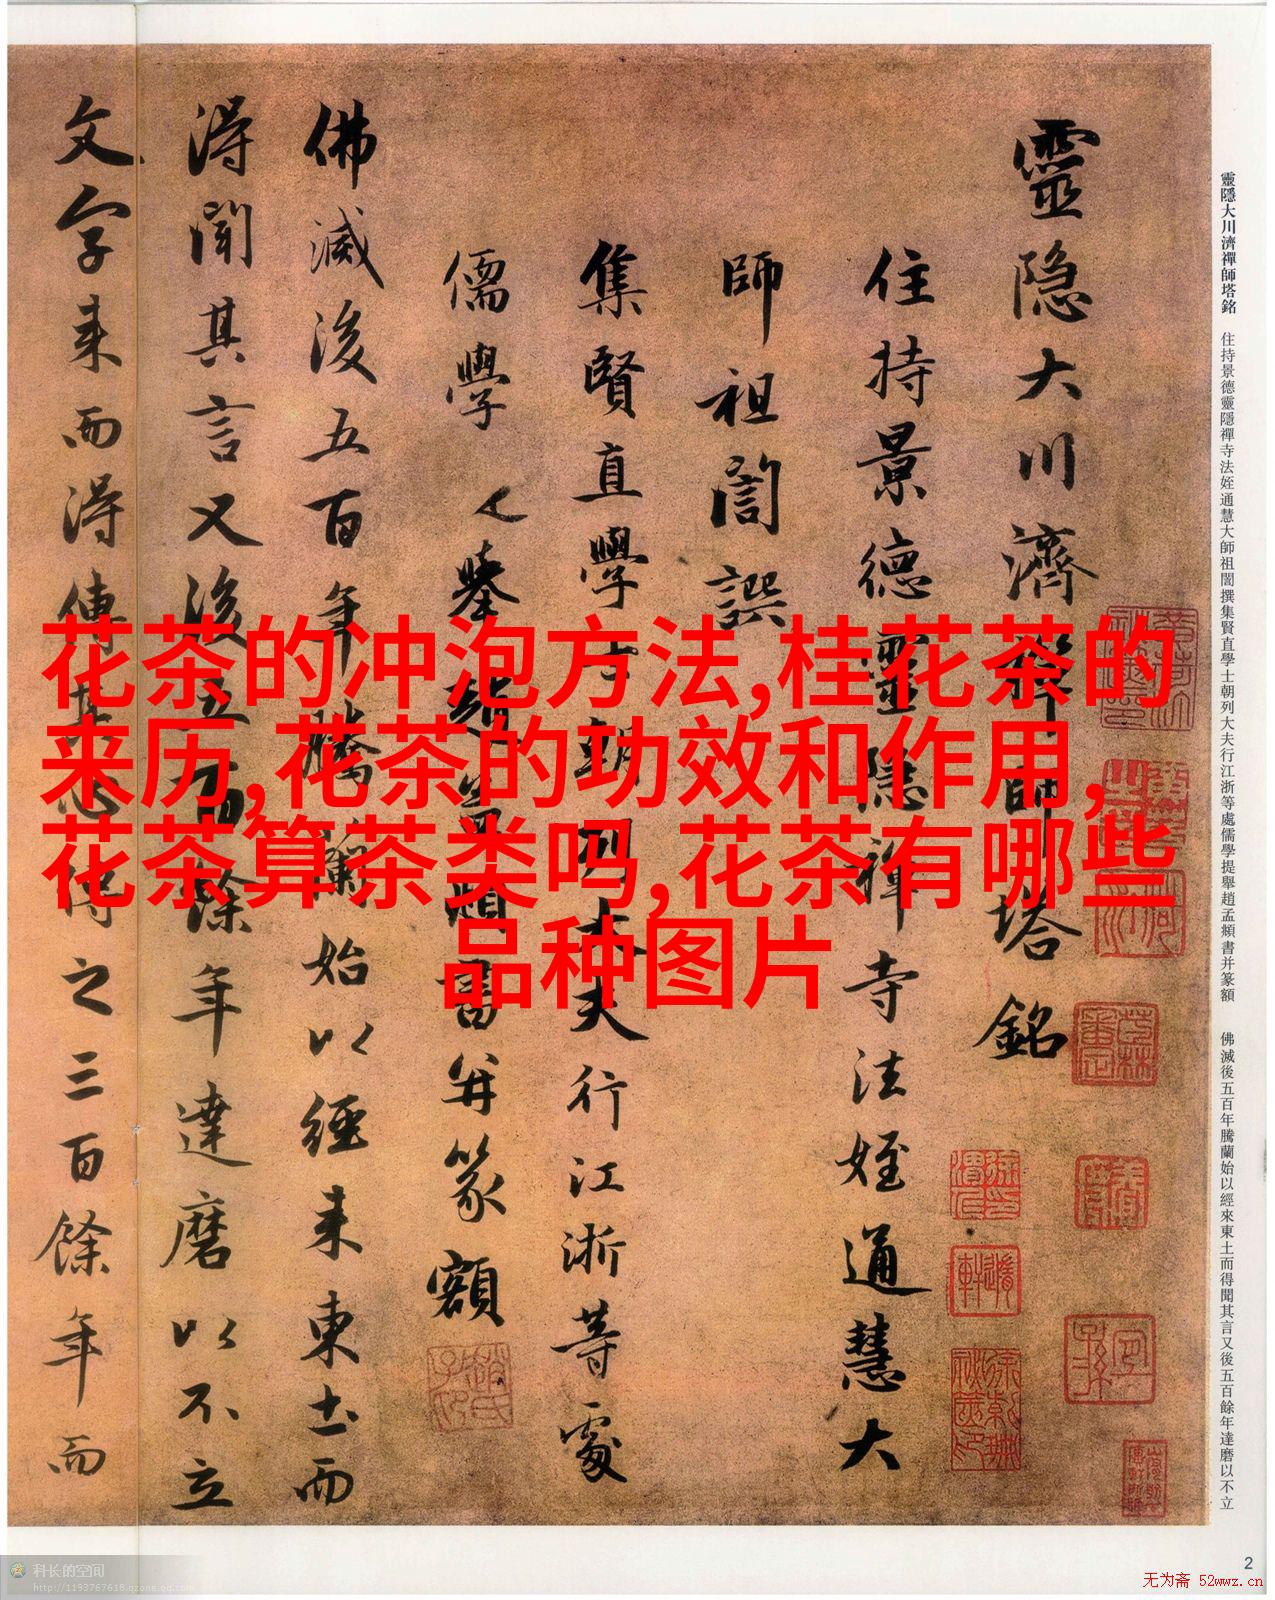 靈隱大川濟禪師塔銘
住持景德靈隱禪寺法姪通慧大
師祖誾譔
集賢直學士朝列大夫行江浙等處
儒學提舉趙孟頫書并篆額
佛滅後五百年騰蘭始以經来東土而
淂聞其言又後五百餘年達磨以不立
文字来而淂傳其心傳之三百餘年而
靈隱大川濟禪師塔銘 住持景德靈隱禪寺法姪通慧大師祖誾撰集賢直學士朝列大夫行江浙等處儒學提舉趙孟頫書并篆額 佛滅後五百年騰蘭始以經來東土而得聞其言又後五百餘年達磨以不立
花茶的冲泡方法,桂花茶的
来历,花茶的功效和作用,
花茶算茶类吗,花茶有哪些
品种图片
2
科长的空间
http://1193767618.qzone.qq.com
无为斋 52wwz.cn